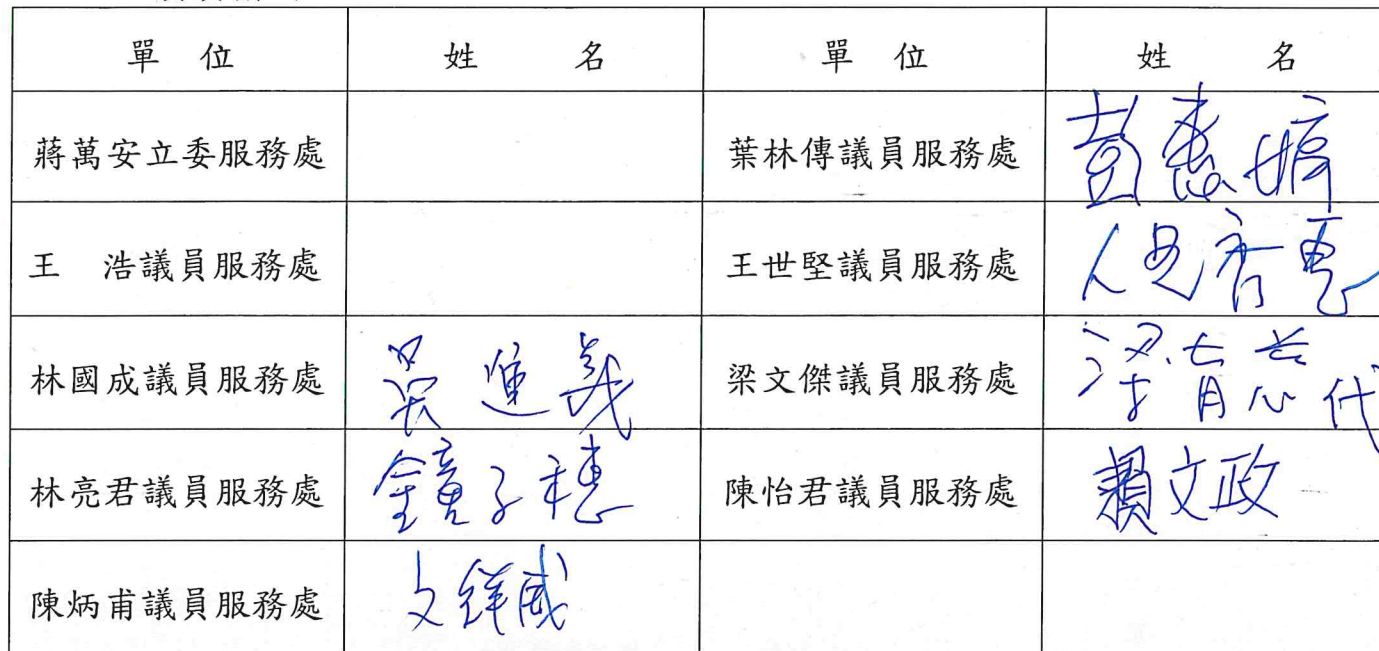 單 位 姓 名 單 位 姓 名
蔣萬安立委服務處 葉林傳議員服務處
王 浩議員服務處 王世堅議員服務處
林國成議員服務處 吳進義 梁文傑議員服務處 代
林亮君議員服務處 鐘子穗 陳怡君議員服務處 賴文政
陳炳甫議員服務處